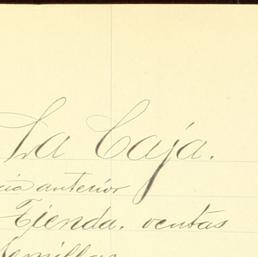 La Caja.
cia anterior
Tienda. ventas
Semillas